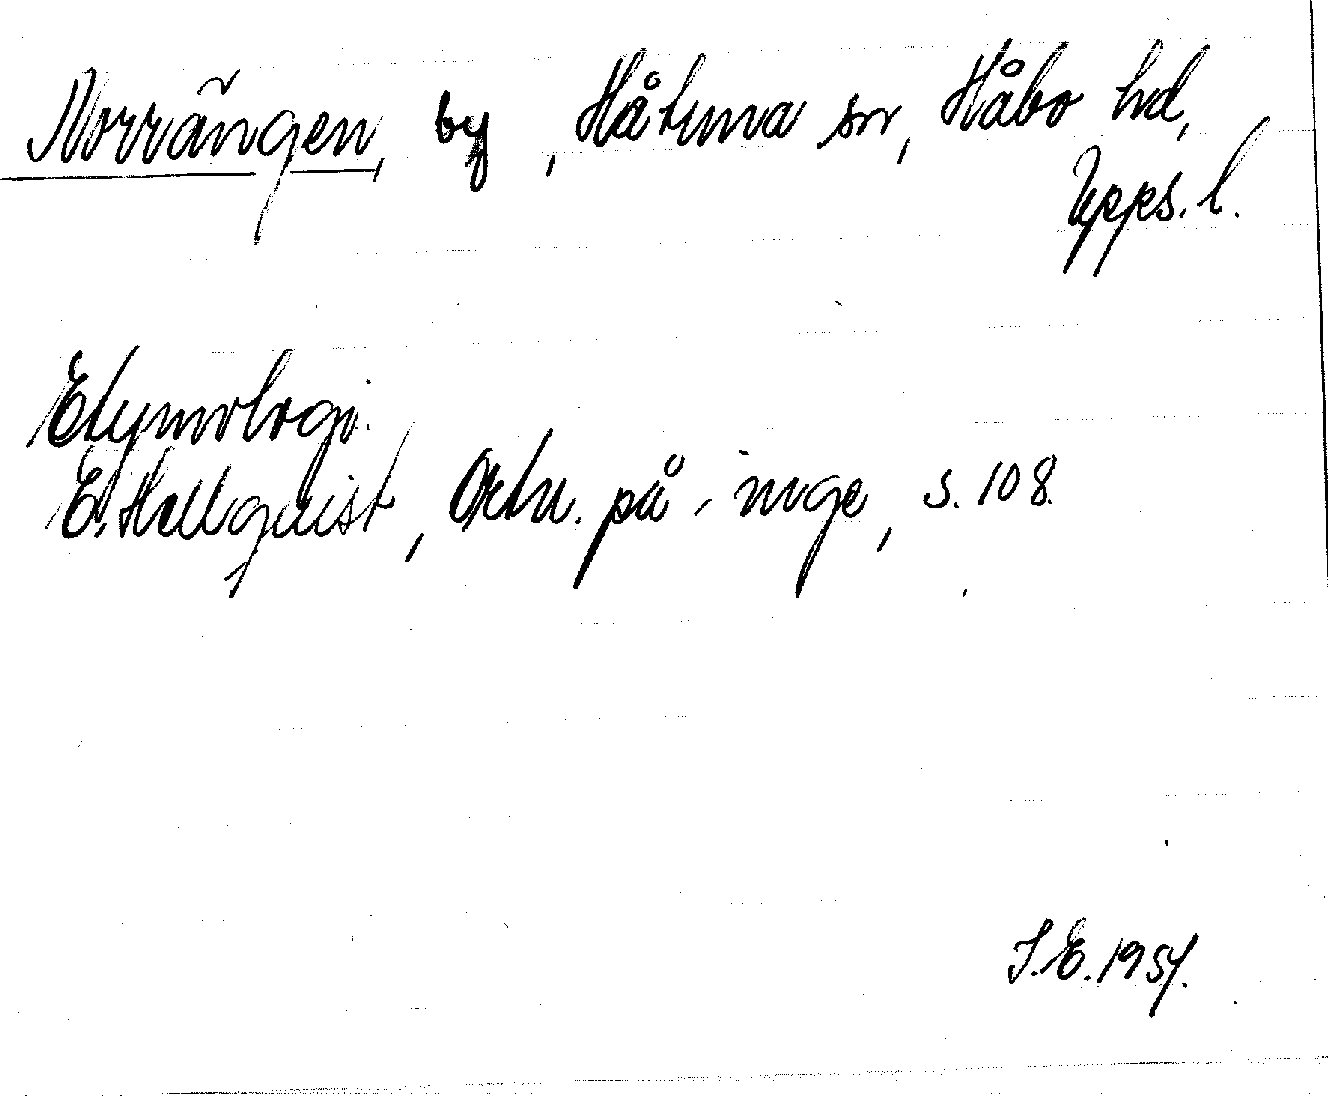 Norrängen, by, Håtuna sn, Håbo hd,
Upps. l.
Etymologi.
E. Hellquist, Ortn. på -inge, s. 108.
S.E. 1954.